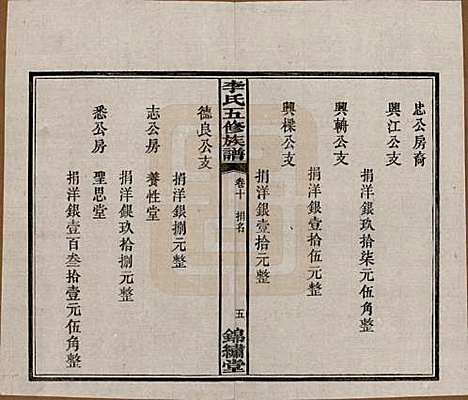 忠公房裔
興江公支
捐洋銀玖拾柒元伍角整
興輈公支
捐洋銀壹拾伍元整
興樑公支
捐洋銀壹拾元整
李氏五修族譜
卷十
捐名
五
錦繡堂
德良公支
捐洋銀捌元整
志公房
養性堂
捐洋銀玖拾捌元整
悉公房
聖思堂
捐洋銀壹百叁拾壹元伍角整